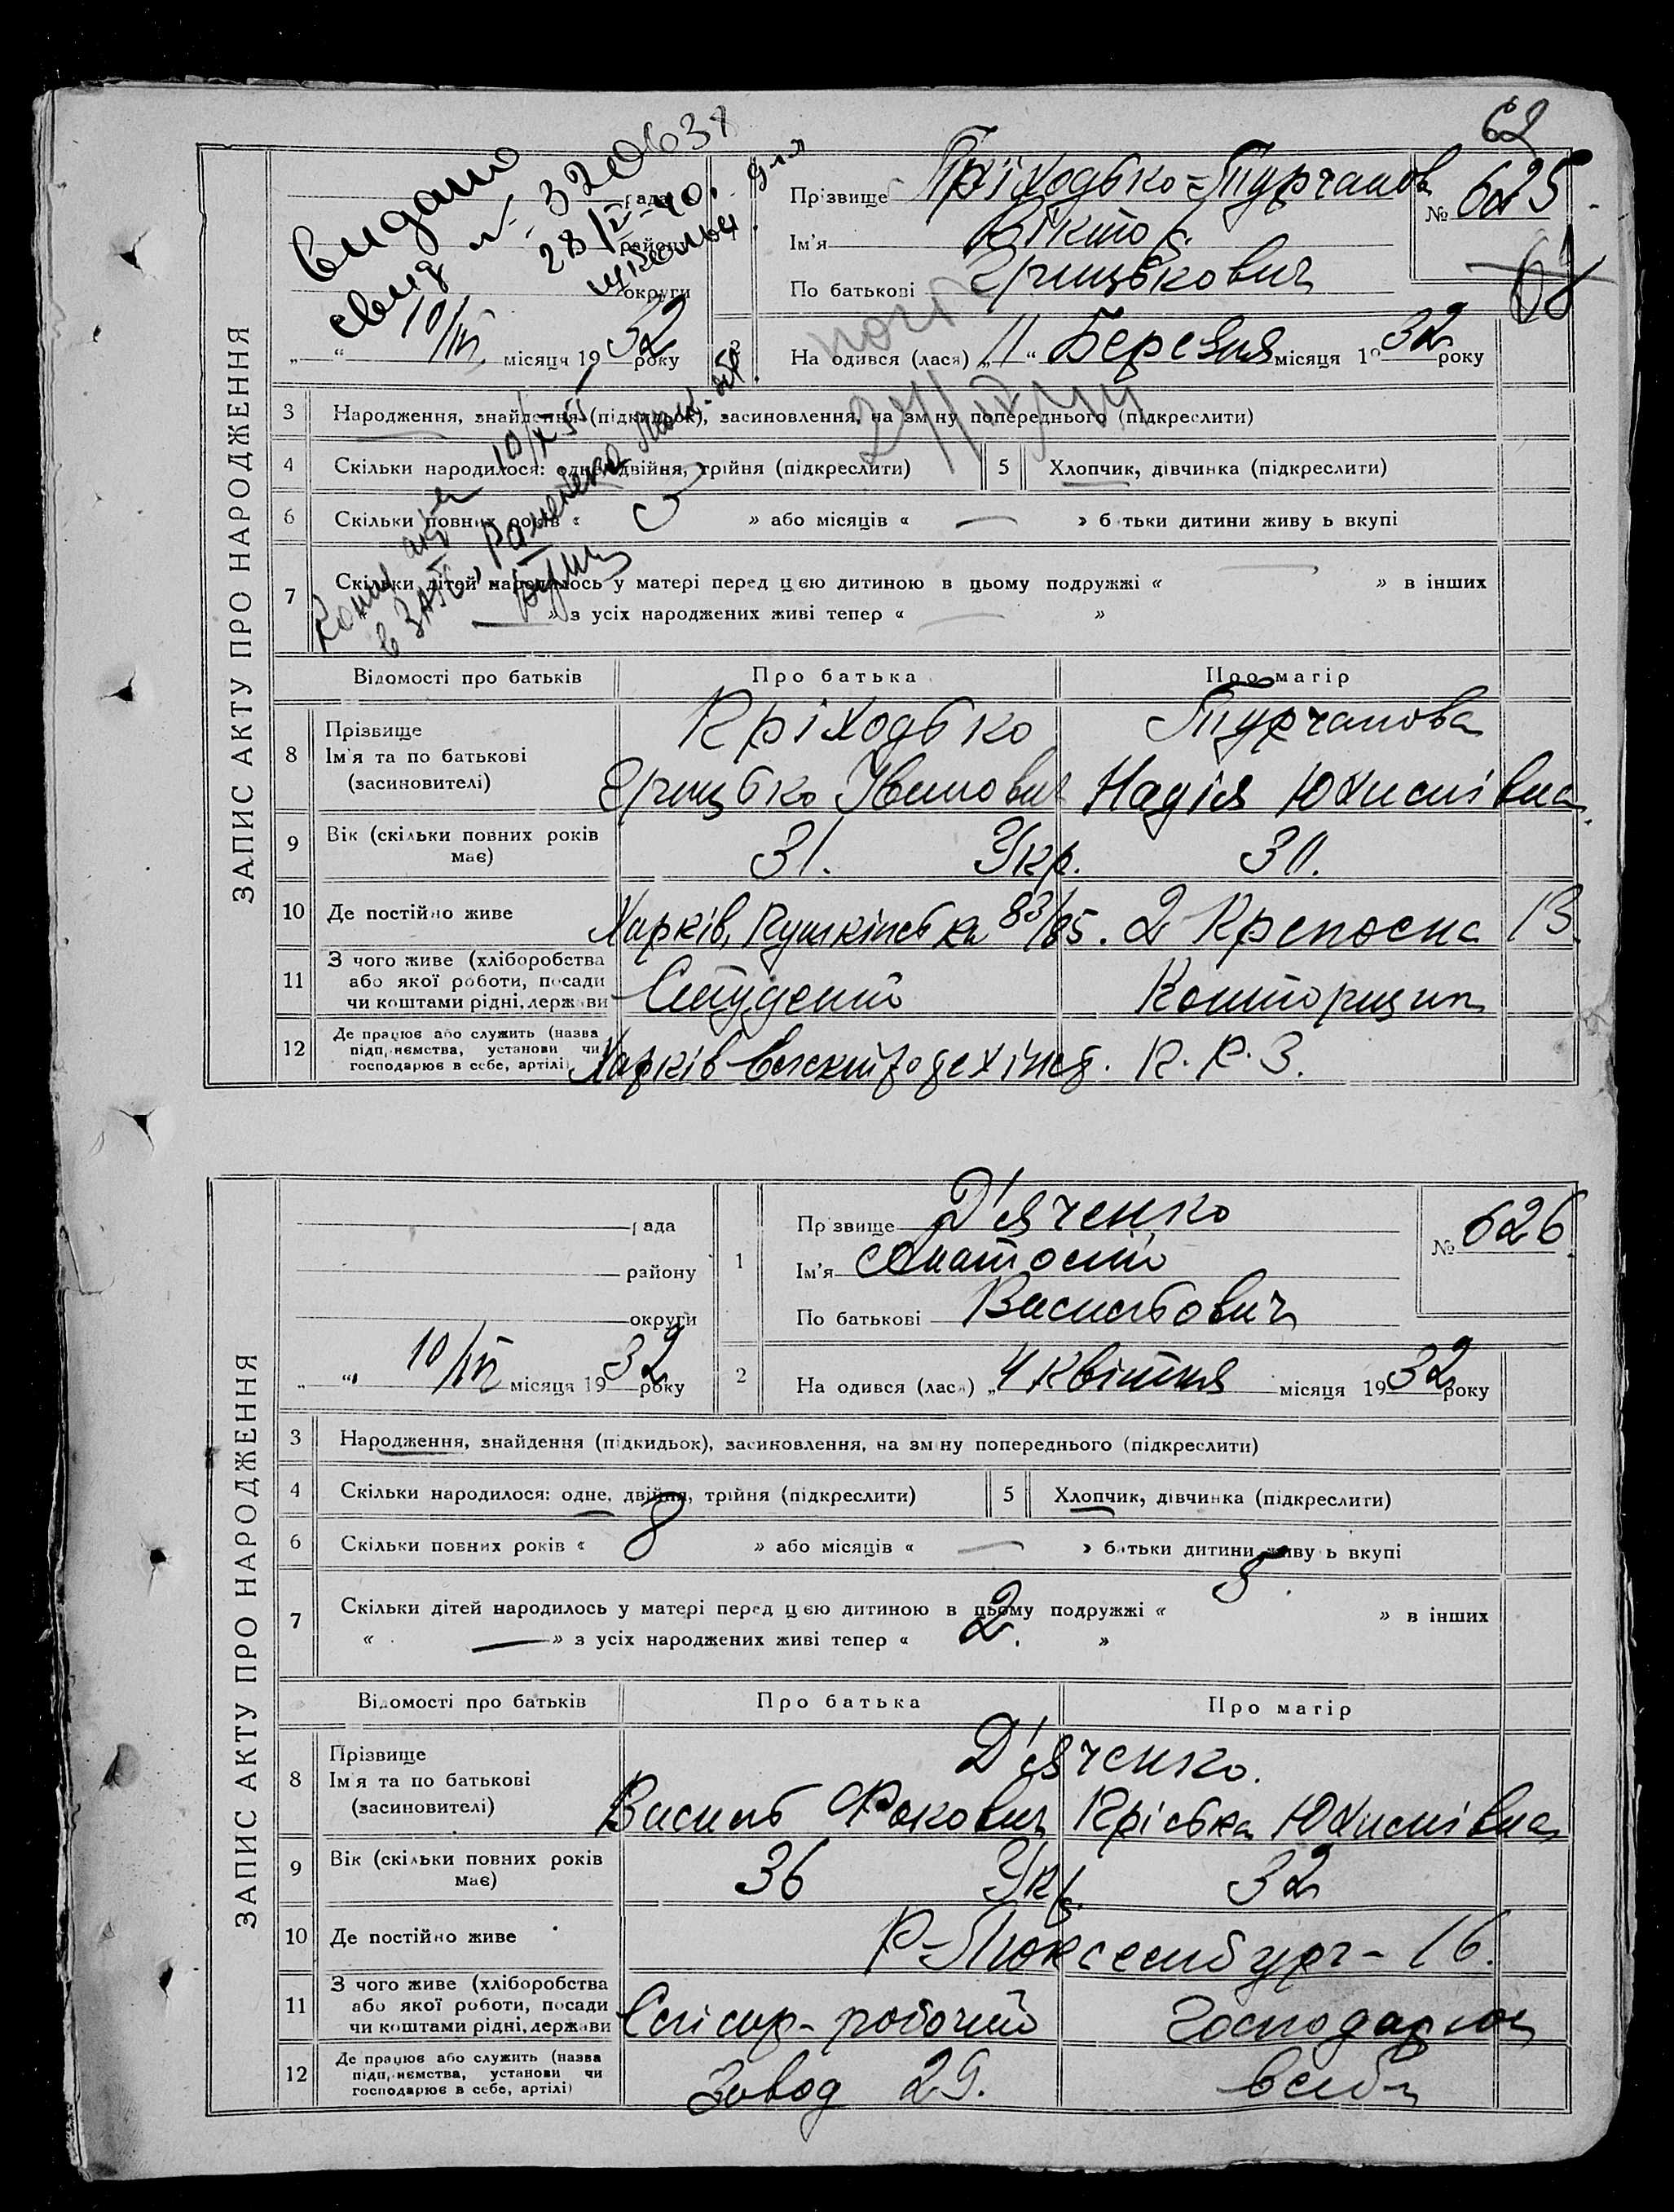 62
ЗАПИС АКТУ ПРО НАРОДЖЕННЯ
видано
свид № 320638
28/ 40. для
школы
рада
району
округи
10/IV місяця 1932 року
Прізвище Пріходько-Турчанов
№ 625
Ім'я Віктор
По батькові Грицькович
На одився (лася) „11“ Березня місяця 1932 року
3 Народження, знайдення (підкидьок), засиновлення, на зміну попереднього (підкреслити)
4 Скільки народилося: одне, двійня, трійня (підкреслити)
5 Хлопчик, дівчинка (підкреслити)
6 Скільки повних років « » або місяців « — » батьки дитини живуть вкупі
7 Скільки дітей народилось у матері перед цією дитиною в цьому подружжі « — » в інших
— » з усіх народжених живі тепер « — »
Відомості про батьків Про батька Про матір
8 Прізвище
Ім'я та по батькові
(засиновителі)
Пріходько
Грицько Іванович
Турчанова
Надія Юхимівна
9 Вік (скільки повних років має) 31. Укр. 31.
10 Де постійно живе Харків, Пушкінська 83/85. 2 Крепосна 13.
11 З чого живе (хліборобства
або якої роботи, посади
чи коштами рідні, держави
Студент
Конторщиця
12 Де працює або служить (назва
підприємства, установи чи
господарює в себе, артілі)
Харків К. К. З.
ЗАПИС АКТУ ПРО НАРОДЖЕННЯ
рада
району
округи
10/IV місяця 1932 року
1 Прізвище Д'яченко
№ 626.
Ім'я Анатолій
По батькові Васильович
2 На одився (лася) „4 квітня місяця 1932 року
3 Народження, знайдення (підкидьок), засиновлення, на зміну попереднього (підкреслити)
4 Скільки народилося: одне, двійня, трійня (підкреслити)
5 Хлопчик, дівчинка (підкреслити)
6 Скільки повних років « 8 » або місяців « — » батьки дитини живуть вкупі
7 Скільки дітей народилось у матері перед цією дитиною в цьому подружжі « 3. » в інших
« — » з усіх народжених живі тепер « 2. »
Відомості про батьків Про батька Про матір
8 Прізвище
Ім'я та по батькові
(засиновителі)
Д'яченко.
Василь Фокович
Юхимівна
9 Вік (скільки повних років має) 36 Укр. 32
10 Де постійно живе Р-Люксембург-16.
11 З чого живе (хліборобства
або якої роботи, посади
чи коштами рідні, держави
Слісар-робочий
Господарює
12 Де працює або служить (назва
підприємства, установи чи
господарює в себе, артілі)
Завод 29.
в себе